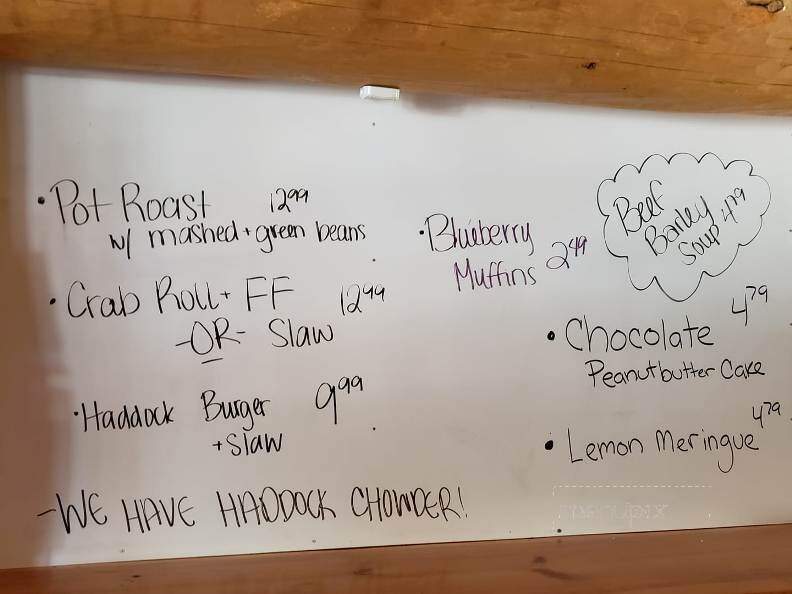 •Pot Roast 12⁹⁹
w/ mashed + green beans
•Crab Roll + FF 12⁹⁹
-OR- Slaw
•Haddock Burger 9⁹⁹
+Slaw
-WE HAVE HADDOCK CHOWDER!
•Blueberry
Muffins 2⁴⁹
Beef
Barley
Soup 4⁷⁹
•Chocolate 4⁷⁹
Peanutbutter Cake
•Lemon Meringue 4⁷⁹